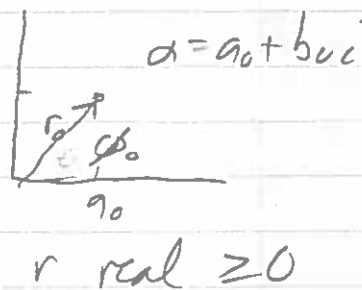 α = a₀ + b₀i
r₀
φ₀
a₀
r real ≥ 0